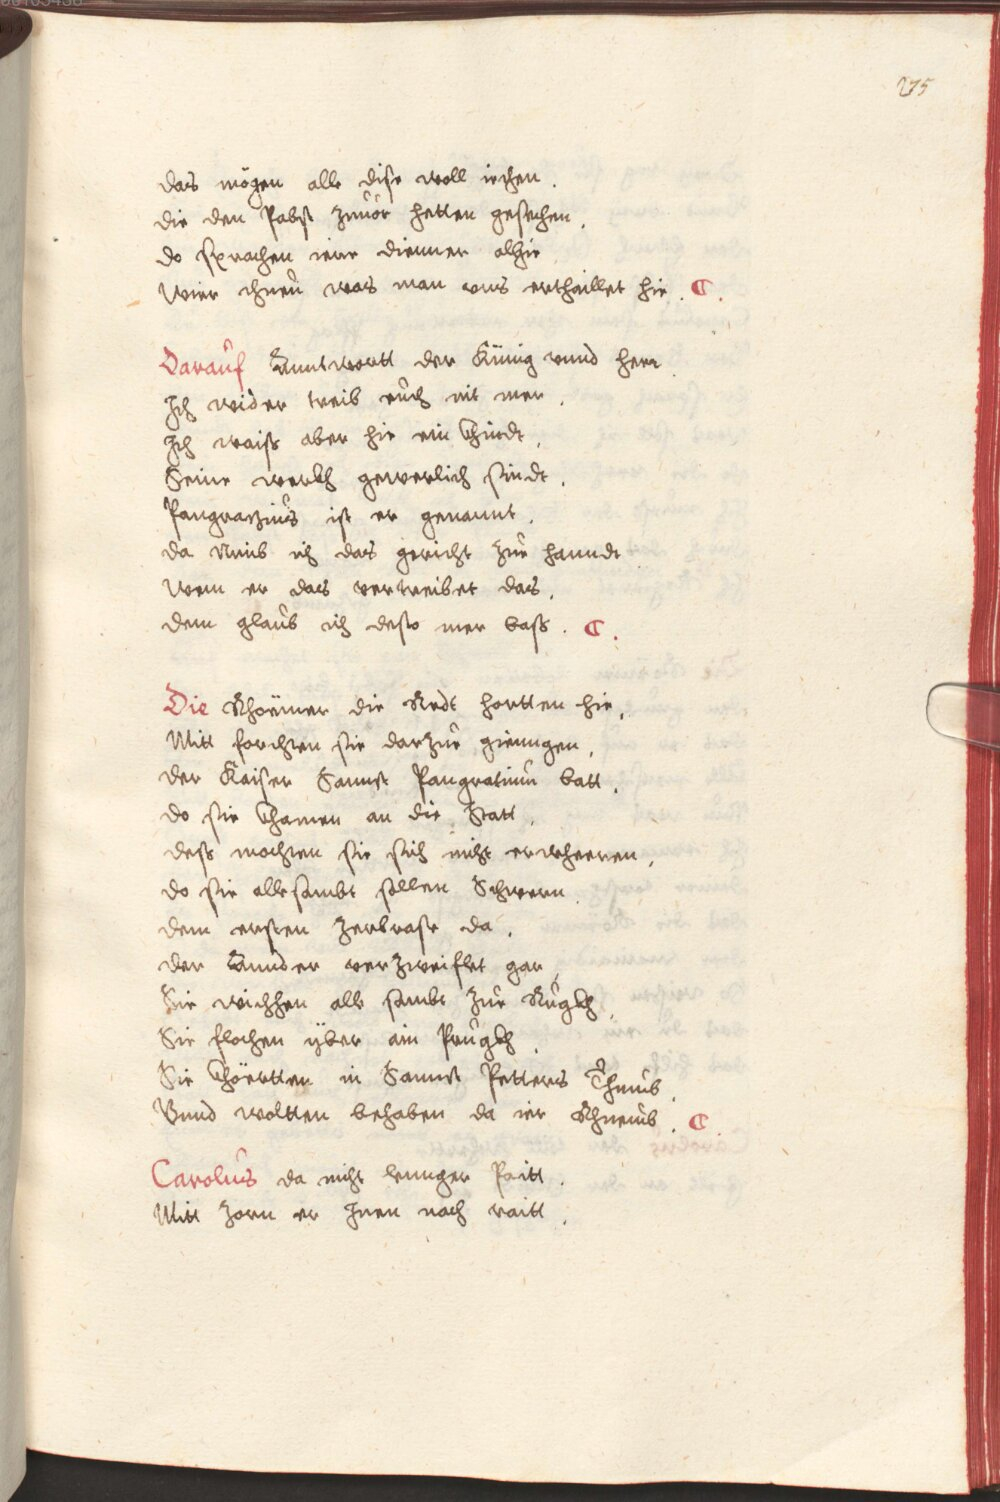 275
das mögen alle dise woll iechen.
die den Pabst zuuor hetten gesechen.
do sprachen iere dienner alhie
Wier thuen was man vns erthaillet hie. C.
Darauf Anntwortt der Künig vnnd herr.
Ich wider treib euch nit mer.
Ich waiss aber hie ein Chindt.
Seine werkh gewerlich sindt.
Pangrazius ist er genannt.
da Nimb ich das gericht zur hanndt
Wem er das vertreibet das.
dem glaub ich desto mer bass. C.
Die Rhoëmer die Redt hortten hie.
Mitt forchten sie darzue gienngen.
der Kaiser Sannct Pangratium batt.
do sie Chamen an die Statt.
dess mochten sie sich nicht erwheeren.
do sie allesambt sollen Schwern.
dem ersten zerbrast da.
der Annder verzweiflet gar.
Sie wichhen alle sambt zue Rugkh.
Sie flochen yber ain Prugkh.
Sie Chöertten in Sannct Petters Thumb.
Vnnd woltten behaben da ier Rhuemb. C.
Carolus da nicht lennger Paitt.
Mitt zorn er Inen nach raitt.